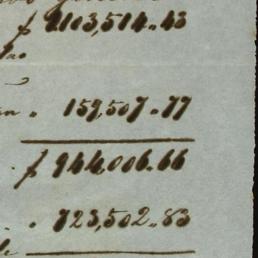 f 1103,514.43
en " 159,507.77
f 944,006.66
" 723,502.83